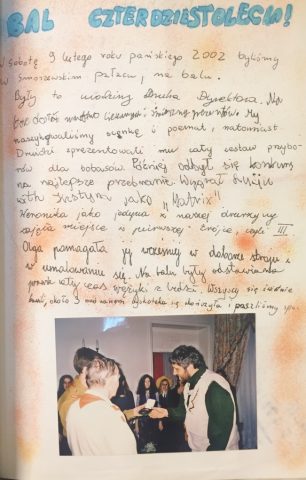 BAL CZTERDZIESTOLECIA!
W sobotę 9 lutego roku pańskiego 2002 byliśmy
w Smoszewskim pałacu, na balu.
Były to urodziny Druha Dyrektora. Na
dotarło mnóstwo ciekawych i
naszykowaliśmy scenkę i poemat, natomiast
Druhiści sprezentowali mu cały zestaw przybo-
rów dla bobasów. Później odbył się konkurs
na najlepsze przebranie. Wygrał
with Justyna jako "Matrix".
Weronika jako jedyna z naszej drużyny
zajęła miejsce w pierwszej trójce, czyli III.
Olga pomagała jej wcześniej w dobraniu stroju i
w umalowaniu się. Na balu były odstawiane
prawie cały czas wężyki z ludzi. Wszyscy się świetnie
bawi, około 3 nad ranem dyskoteka się skończyła i poszliśmy spać.